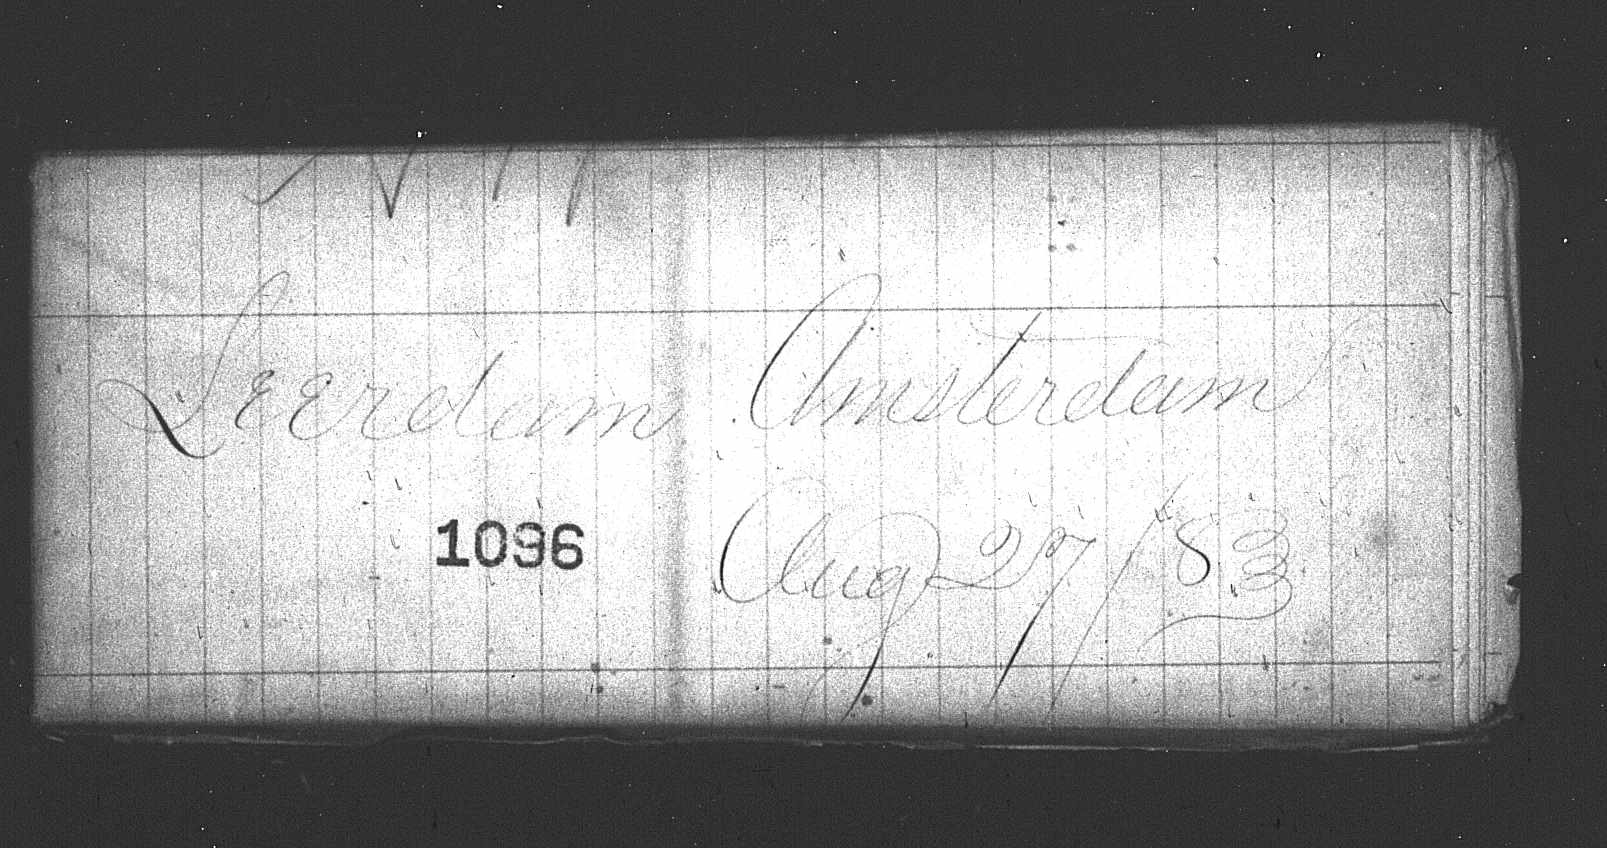 Leerdam Amsterdam
1096 Aug 27/83